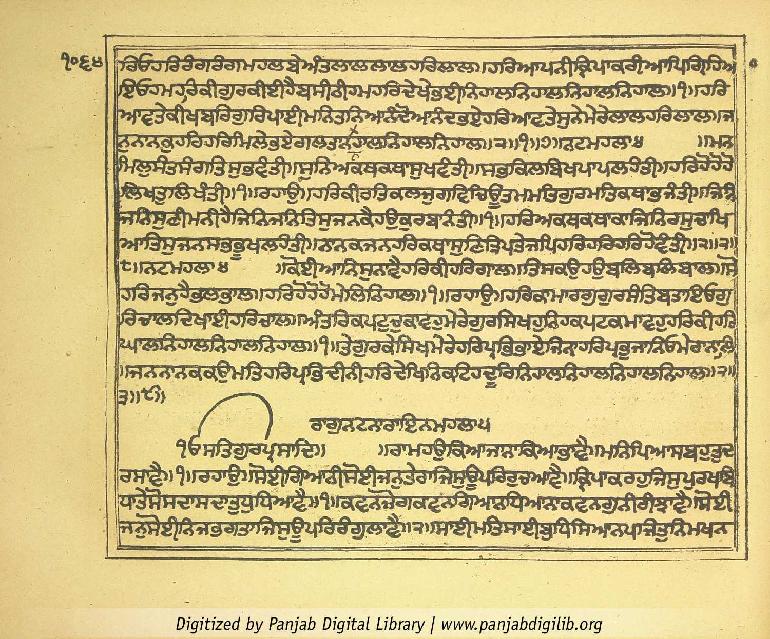 ੧੦੬੪
ਰਿਓਹਰਿਰੰਗਰੰਗਮਹਲਬੇਅੰਤਲਾਲਲਾਲਹਰਿਲਾਲ॥ਹਰਿਆਪਨੀਕ੍ਰਿਪਾਕਰੀਆਪਿਗ੍ਰਿਹਿਅ
ਇਓਹਮਹਰਿਕੀਗੁਰਕੀਈਹੈਬਸੀਠੀਹਮਹਰਿਦੇਖੇਭਈਨਿਹਾਲਨਿਹਾਲਨਿਹਾਲਨਿਹਾਲ॥੧॥ਹਰਿ
ਆਵਤੇਕੀਖਬਰਿਗੁਰਿਪਾਈਮਨਿਤਨਿਆਨੰਦੋਆਨੰਦਭਏਹਰਿਆਵਤੇਸੁਨੇਮੇਰੇਲਾਲਹਰਿਲਾਲ॥ਜ
ਨੁਨਾਨਕੁਹਰਿਹਰਿਮਿਲੇਭਏਗਲਤਾਨਹਾਲਨਿਹਾਲਨਿਹਾਲ॥੨॥੧॥੭॥ਨਟਮਹਲਾ੪ ॥ਮਨ
ਮਿਲੁਸੰਤਸੰਗਤਿਸੁਭਵੰਤੀ॥ਸੁਨਿਅਕਥਕਥਾਸੁਖਵੰਤੀ॥ਸਭਕਿਲਬਿਖਪਾਪਲਹੰਤੀ॥ਹਰਿਹੋਹੋਹੋ
ਲਿਖਤੁਲਿਖੰਤੀ॥੧॥ਰਹਾਉ॥ਹਰਿਕੀਰਤਿਕਲਜੁਗਵਿਚਿਊਤਮਮਤਿਗੁਰਮਤਿਕਥਾਭਜੰਤੀ॥ਜਿਨਿ
ਜਨਿਸੁਣੀਮਨੀਹੈਜਿਨਿਜਨਿਤਿਸੁਜਨਕੈਹਉਕੁਰਬਾਨੰਤੀ॥੧॥ਹਰਿਅਕਥਕਥਾਕਾਜਿਨਿਰਸੁਚਾਖਿ
ਆਤਿਸੁਜਨਸਭਭੂਖਲਹੰਤੀ॥ਨਾਨਕਜਨਹਰਿਕਥਾਸੁਣਿਤ੍ਰਿਪਤੇਜਪਿਹਰਿਹਰਿਹਰਿਹੋਵੰਤੀ॥੨॥੨॥
੮॥ਨਟਮਹਲਾ੪ ॥ਕੋਈਆਨਿਸੁਨਾਵੈਹਰਿਕੀਹਰਿਗਾਲ॥ਤਿਸਕਉਹਉਬਲਿਬਲਿਬਾਲ॥ਸੋ
ਹਰਿਜਨੁਹੈਭਲਭਾਲ॥ਹਰਿਹੋਹੋਹੋਮੇਲਿਨਿਹਾਲ॥੧॥ਰਹਾਉ॥ਹਰਿਕਾਮਾਰਗੁਗੁਰਸੰਤਿਬਤਾਇਓਗੁ
ਰਿਚਾਲਦਿਖਾਈਹਰਿਚਾਲ॥ਅੰਤਰਿਕਪਟੁਚੁਕਾਵਹੁਮੇਰੇਗੁਰਸਿਖਹੁਨਿਹਕਪਟਕਮਾਵਹੁਹਰਿਕੀਹਰਿ
ਘਾਲਨਿਹਾਲਨਿਹਾਲਨਿਹਾਲ॥੧॥ਤੇਗੁਰਕੇਸਿਖਮੇਰੇਹਰਿਪ੍ਰਭਿਭਾਏਜਿਨਾਹਰਿਪ੍ਰਭੁਜਾਨਿਓਮੇਰਾਨਾਲਿ
॥ਜਨਨਾਨਕਕਉਮਤਿਹਰਿਪ੍ਰਭਿਦੀਨੀਹਰਿਦੇਖਿਨਿਕਟਿਹਦੂਰਿਨਿਹਾਲਨਿਹਾਲਨਿਹਾਲਨਿਹਾਲ॥੨॥
੩॥੯॥
ਰਾਗੁਨਟਨਾਰਾਇਨਮਹਲਾ੫
ੴਸਤਿਗੁਰਪ੍ਰਸਾਦਿ॥ ॥ਰਾਮਹਉਕਿਆਜਾਨਾਕਿਆਭਾਵੈ॥ਮਨਿਪਿਆਸਬਹੁਤੁਦ
ਰਸਾਵੈ॥੧॥ਰਹਾਉ॥ਸੋਈਗਿਆਨੀਸੋਈਜਨੁਤੇਰਾਜਿਸੁਊਪਰਿਰੁਚਆਵੈ॥ਕ੍ਰਿਪਾਕਰਹੁਜਿਸੁਪੁਰਖਬਿ
ਧਾਤੇਸੋਸਦਾਸਦਾਤੁਧੁਧਿਆਵੈ॥੧॥ਕਵਨਜੋਗਕਵਨਗਿਆਨਧਿਆਨਾਕਵਨਗੁਨੀਰੀਝਾਵੈ॥ਸੋਈ
ਜਨੁਸੋਈਨਿਜਭਗਤਾਜਿਸੁਊਪਰਿਰੰਗੁਲਾਵੈ॥੨॥ਸਾਈਮਤਿਸਾਈਬੁਧਿਸਿਆਨਪਜਿਤੁਨਿਮਖਨ
Digitized by Panjab Digital Library | www.panjabdigilib.org